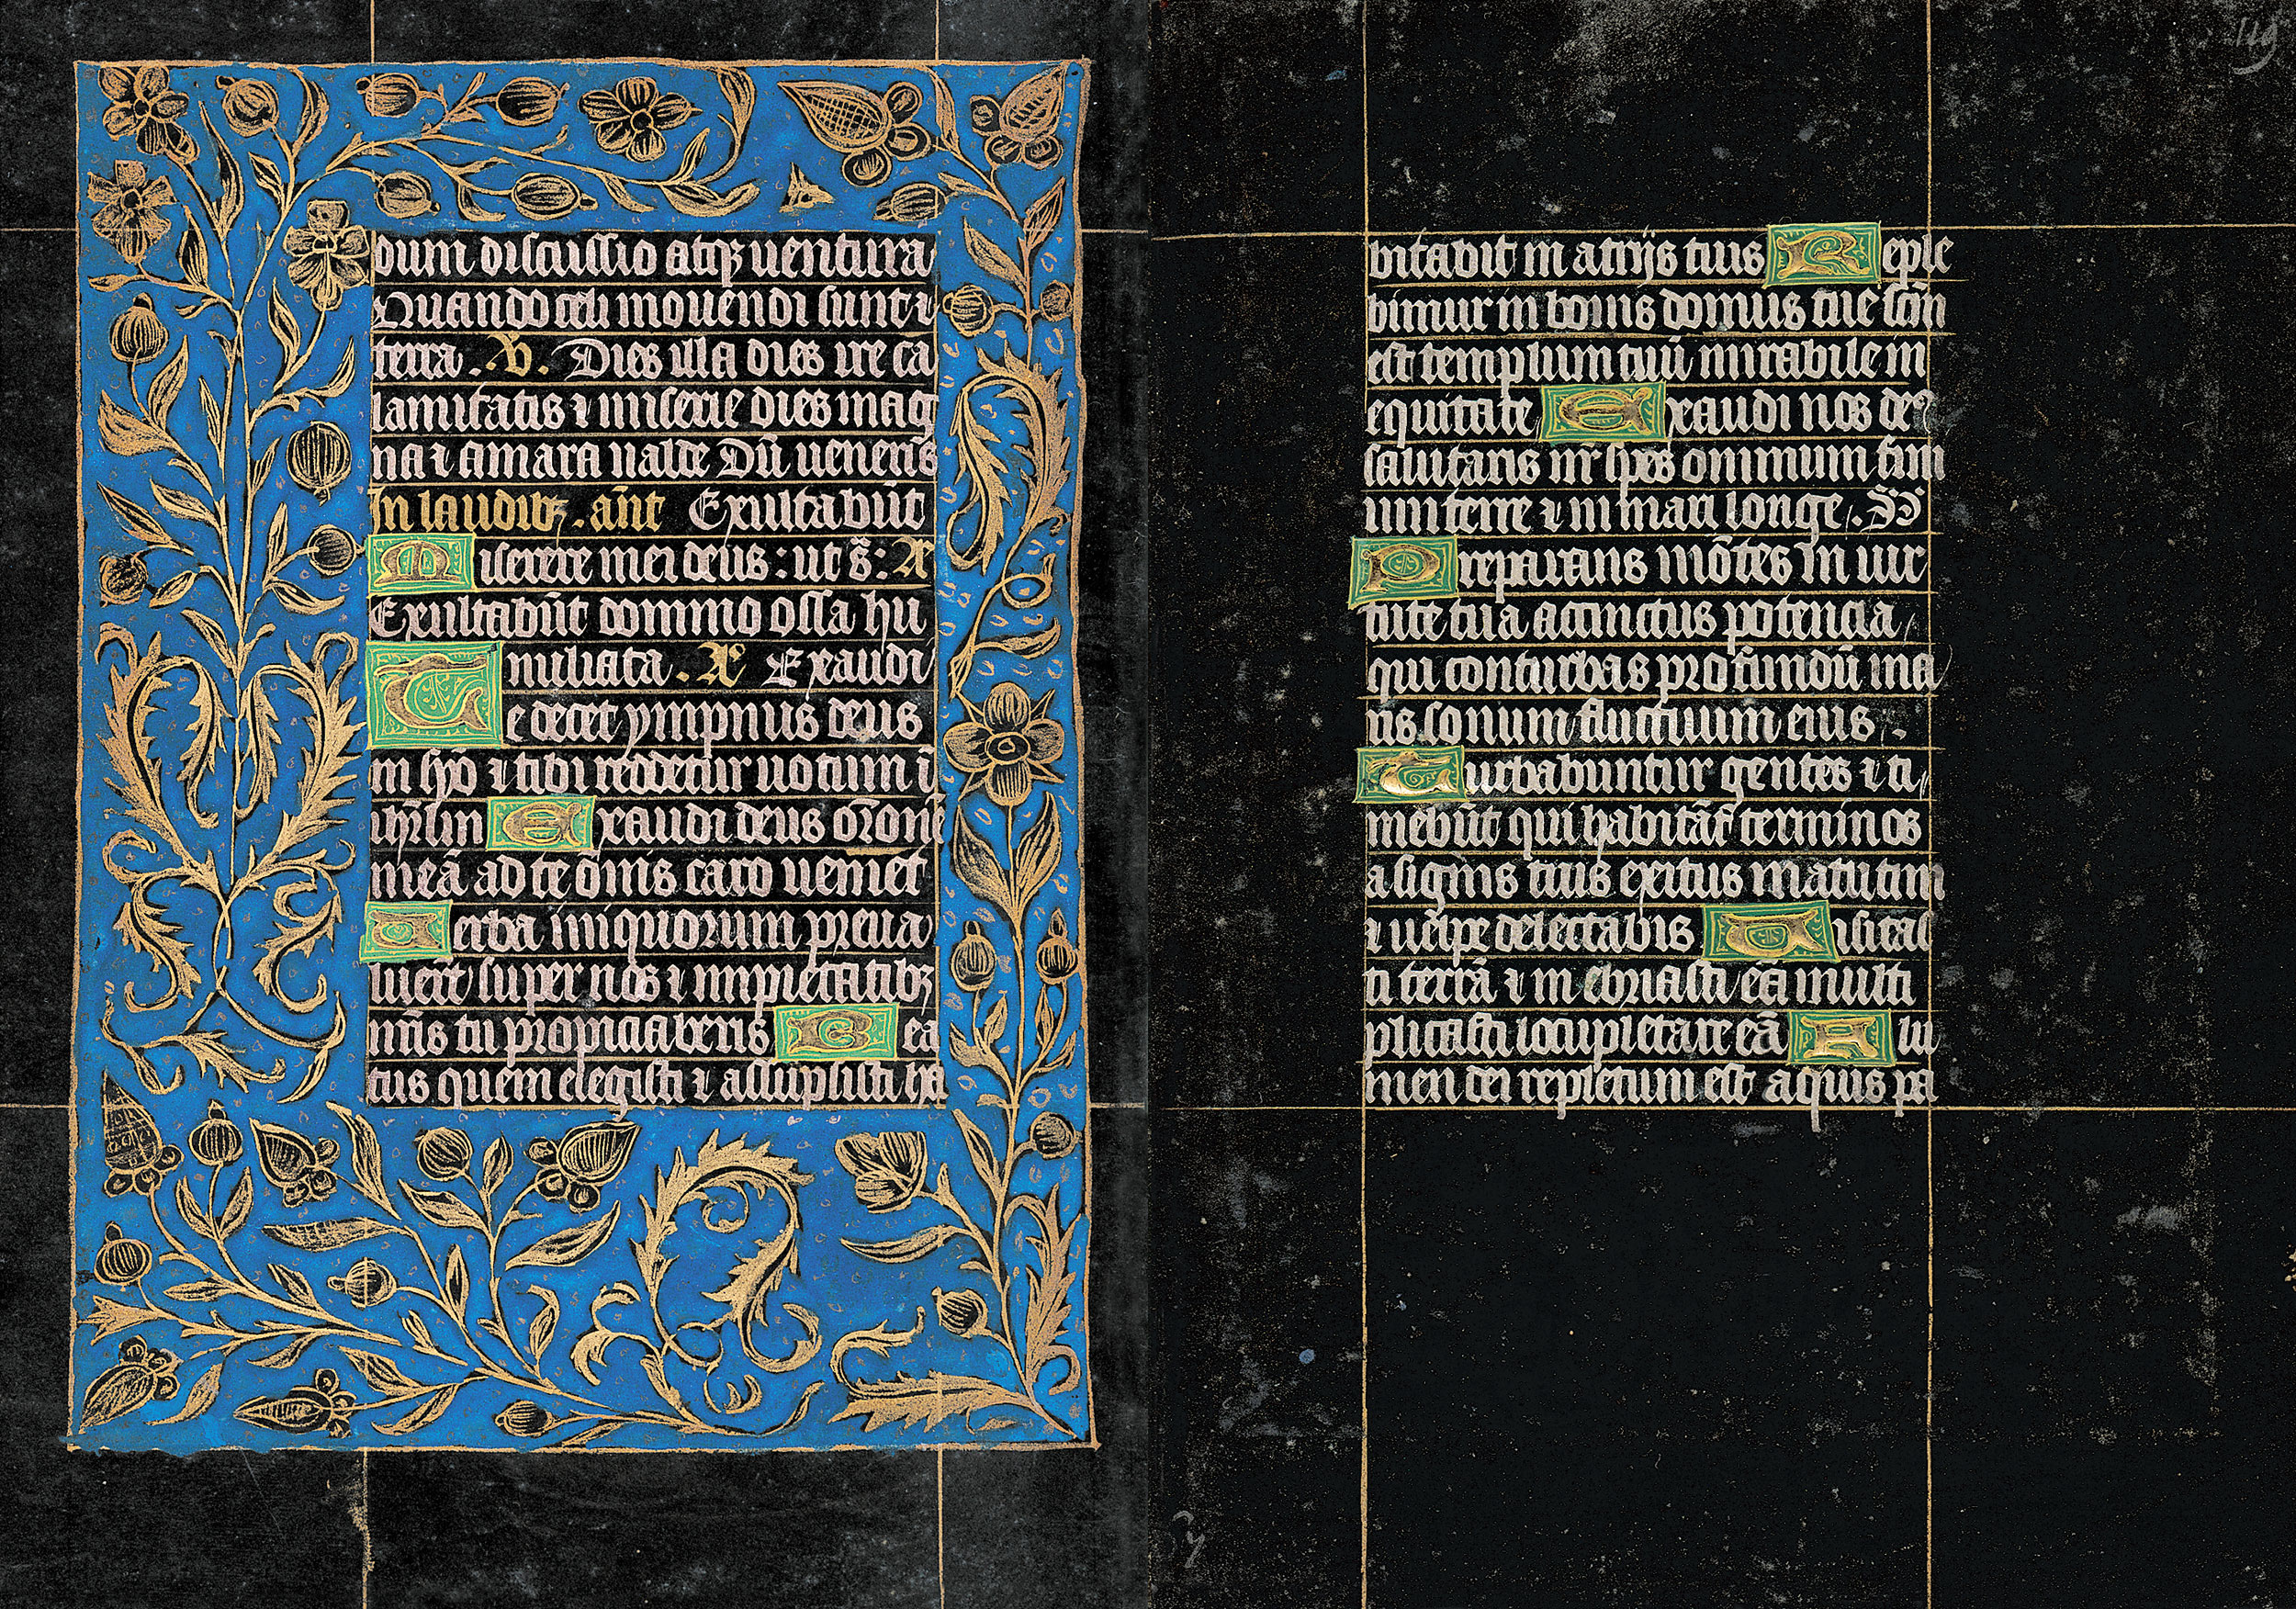 dum discussio atqꝫ uentura
Quando celi mouendi sunt ⁊
terra. .V. Dies illa dies ire ca
lamitatis ⁊ miserie dies mag
na ⁊ amara ualde Dū ueneris
In laudibꝫ . añt Exultabūt
Miserere mei deus: ut s̄: A
Exultabūt domino ossa hu
miliata . A Exaudi
Te decet ympnus deus
in syō ⁊ tibi reddetur uotum ī
ihrl̄m Exaudi deus oronē
meā ad te om̄is caro ueniet
Uerba iniquorum preua
luert̄ super nos ⁊ impietatibꝫ
nr̄is tu propiciaberis Bea
tus quem elegisti ⁊ assupsisti ha
119
bitabit in atrijs tuis Reple
bimur in bonis domus tue scm̄
est templum tuū mirabile in
equitate Exaudi nos deꝰ
salutaris nr̄ spes omnium fini
um terre ⁊ in mari longe.
Preparans mōtes in uir
tute tua accinctus potencia
qui conturbas profundū ma
ris sonum fluctuum eius .
Turbabuntur gentes ⁊ ti
mebūt qui habitāt terminos
a signis tuis exitus matutini
⁊ uespe delectabis Uisitas
ti terrā ⁊ inebriasti eā multi
plicasti locupletare eā Flu
men dei repletum est aquis pa